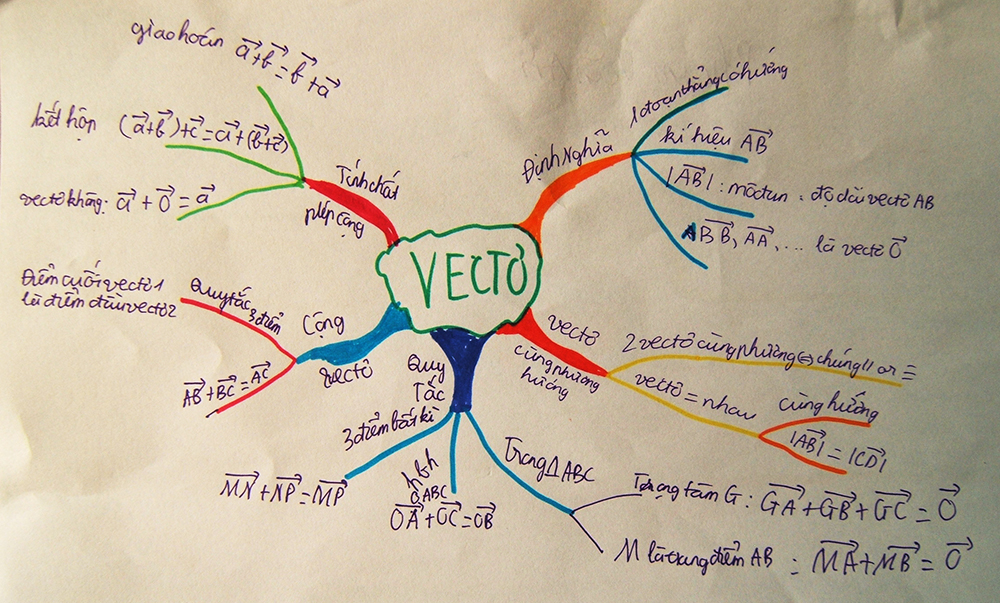 VECTƠ
Định Nghĩa
1 đoạn thẳng có hướng
kí hiệu \overrightarrow{AB}
|\overrightarrow{AB}| : môđun : độ dài vectơ AB
\overrightarrow{BB}, \overrightarrow{AA}, ... là vectơ \vec{O}
vectơ
cùng phương
hướng
2 vectơ cùng phương ⇔ chúng // or ≡
vectơ = nhau
cùng hướng
|\overrightarrow{AB}| = |\overrightarrow{CD}|
Quy
Tắc
3 điểm bất kì
\overrightarrow{MN} + \overrightarrow{NP} = \overrightarrow{MP}
hbh
OABC
\overrightarrow{OA} + \overrightarrow{OC} = \overrightarrow{OB}
Trong Δ ABC
Trọng tâm G : \overrightarrow{GA} + \overrightarrow{GB} + \overrightarrow{GC} = \vec{O}
M là trung điểm AB : \overrightarrow{MA} + \overrightarrow{MB} = \vec{O}
Cộng
vectơ
Quy tắc 3 điểm
Điểm cuối vectơ 1
là điểm đầu vectơ 2
\overrightarrow{AB} + \overrightarrow{BC} = \overrightarrow{AC}
Tính chất
phép cộng
giao hoán \vec{a} + \vec{b} = \vec{b} + \vec{a}
kết hộp (\vec{a} + \vec{b}) + \vec{c} = \vec{a} + (\vec{b} + \vec{c})
vectơ không: \vec{a} + \vec{O} = \vec{a}